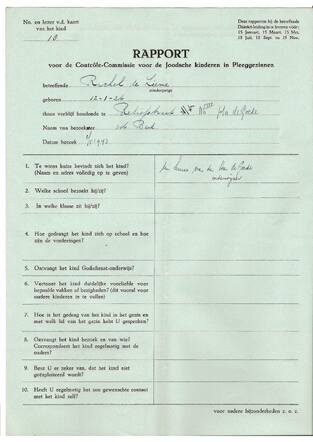 No. en letter v.d. kaart
van het kind
10
Deze rapporten bij de betreffende
District-leiding in te leveren vóór:
15 Januari, 15 Maart, 15 Mei,
15 Juli, 15 Sept. en 15 Nov.
RAPPORT
voor de Contrôle-Commissie voor de Joodsche kinderen in Pleeggezinnen.
betreffende Rachel de Leeuw
minderjarige
geboren 12-1-26
thans verblijf houdende te
Naam van bezoekster
Datum bezoek 1943
1. Te wiens huize bevindt zich het kind?
(Naam en adres volledig op te geven)
2. Welke school bezoekt hij/zij?
3. In welke klasse zit hij/zij?
4. Hoe gedraagt het kind zich op school en hoe
zijn de vorderingen?
5. Ontvangt het kind Godsdienst-onderwijs?
6. Vertoont het kind duidelijke voorliefde voor
bepaalde vakken of bezigheden? (dit vooral voor
oudere kinderen in te vullen)
7. Hoe is het gedrag van het kind in het gezin en
met welk lid van het gezin hebt U gesproken?
8. Ontvangt het kind bezoek en van wie?
Correspondeert het kind regelmatig met de
ouders?
9. Bent U er zeker van, dat het kind niet
geëxploiteerd wordt?
10. Heeft U regelmatig het ons gewenschte contact
met het kind zelf?
voor nadere bijzonderheden z. o. z.